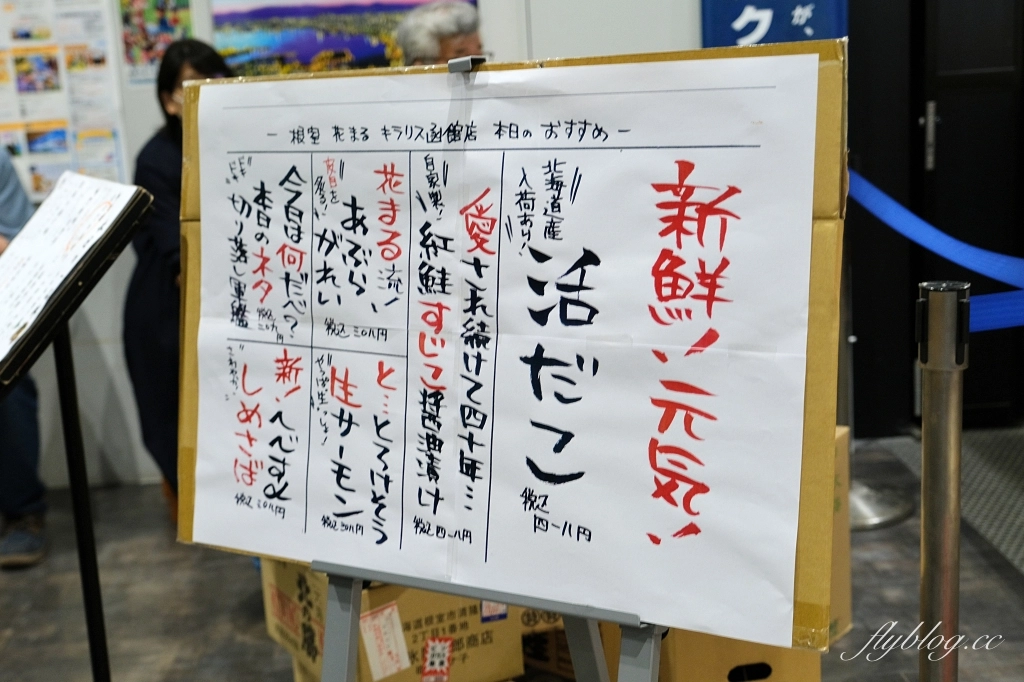 ー 根室 花まる キラリス函館店 本日の おすすめ ー
新鮮！元気！
北海道産
入荷あり！
活だこ
税込
四一八円
愛され続けて四十年…
自家製！
紅鮭すじこ醤油漬け
税込 四一八円
花まる流！
あぶら
がれい
税込 三〇八円
と…とろけそう
生サーモン
やっぱ生でしょ！
税込 三〇八円
今日は何だべ？
本日のネタ
切り落し軍艦
新！
しめさば
税込 三〇八円
ク
が、
flyblog.cc